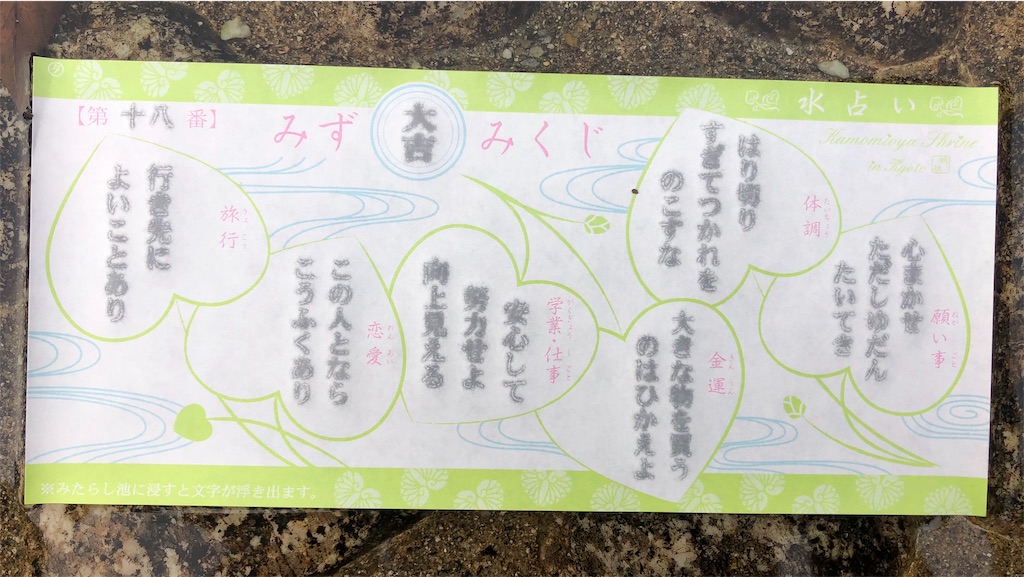 水占い
Kamomioya Shrine
in Kyoto
みず
大吉
みくじ
【第十八番】
願い事
ねが
ごと
心まかせ
ただしゆだん
たいてき
体調
たいちょう
はり切り
すぎてつかれを
のこすな
金運
きんうん
大きな物を買う
のはひかえよ
学業・仕事
がくぎょう
しごと
安心して
努力せよ
向上見える
恋愛
れんあい
この人となら
こうふくあり
旅行
りょこう
行き先に
よいことあり
※みたらし池に浸すと文字が浮き出ます。